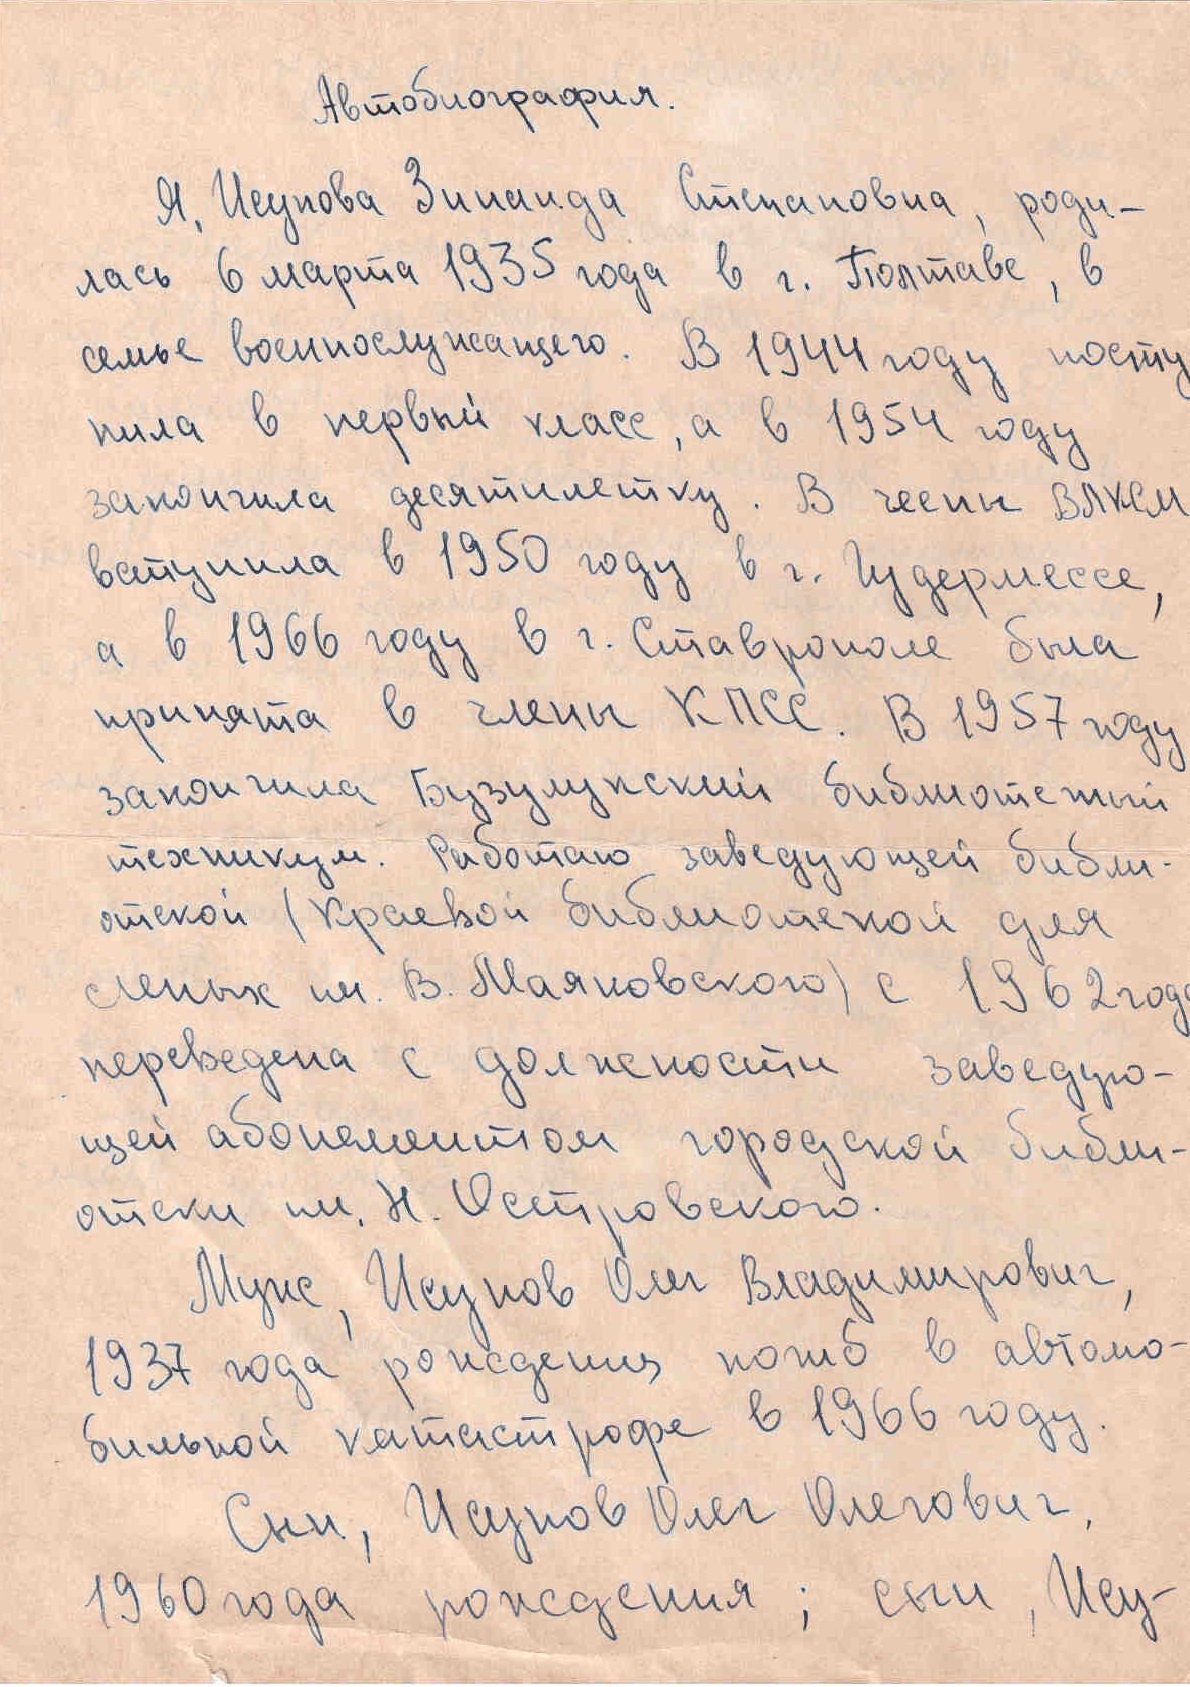 Автобиография.
Я, Исупова Зинаида Степановна, роди-
лась 6 марта 1935 года в г. Полтаве, в
семье военнослужащего. В 1944 году посту
пила в первый класс, а в 1954 году
закончила десятилетку. В члены ВЛКСМ
вступила в 1950 году в г. Гудермессе,
а в 1966 году в г. Ставрополе была
принята в члены КПСС. В 1957 году
закончила Бузулукский библиотечный
техникум. Работаю заведующей библи-
отекой (Краевой библиотекой для
слепых им. В. Маяковского) с 1962 года
переведена с должности заведую-
щей абонементом городской библи-
отеки им. Н. Островского.
Муж, Исупов Олег Владимирович,
1937 года рождения, погиб в автомо-
бильной катастрофе в 1966 году.
Сын, Исупов Олег Олегович,
1960 года рождения; сын, Ису-